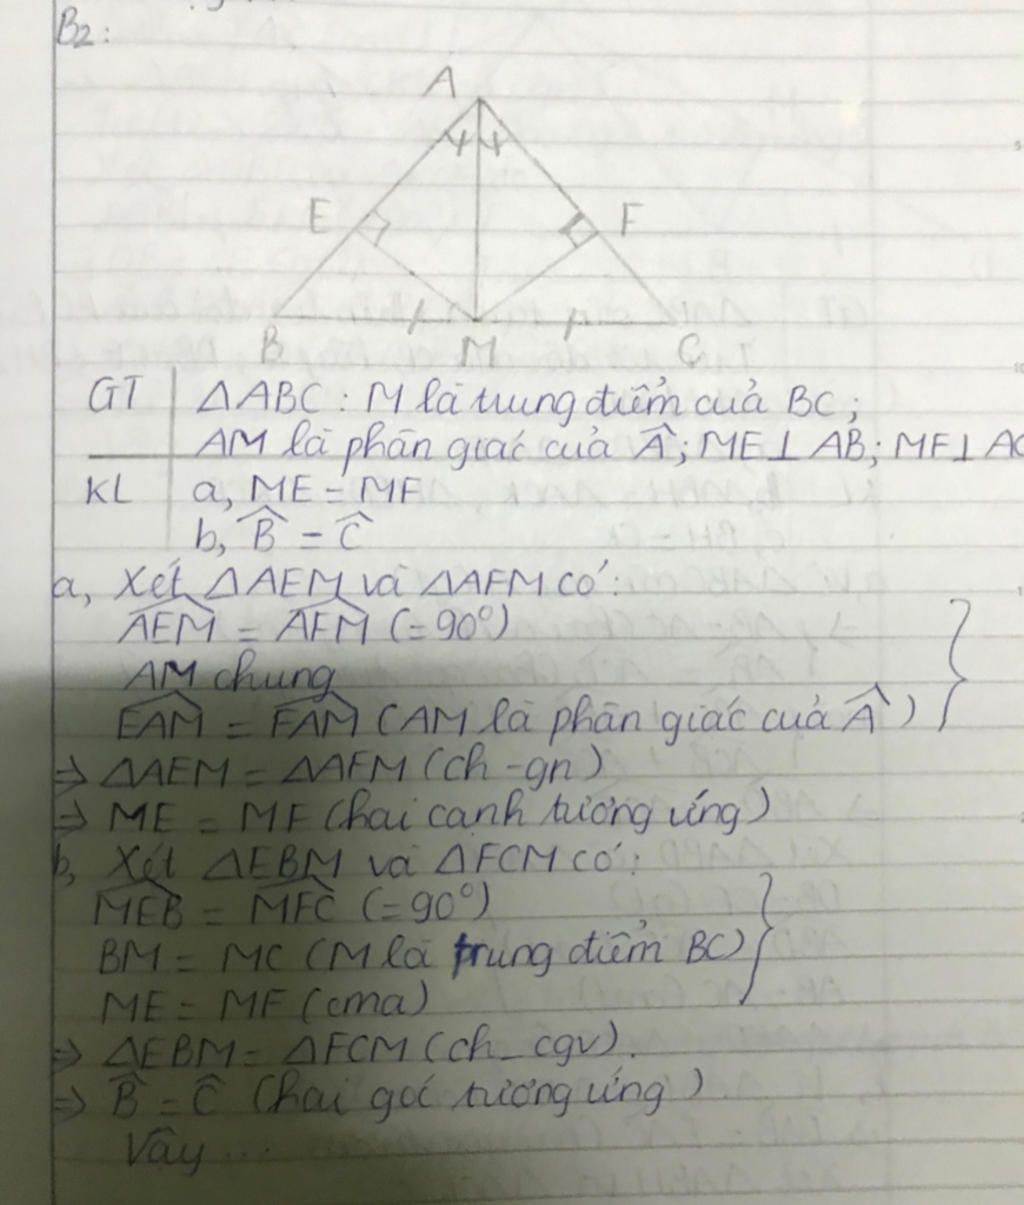 B2:
A
E F
B M C
GT ΔABC : M là trung điểm của BC ;
AM là phân giác của Â ; ME⊥AB ; MF⊥AC
KL a, ME = MF
b, B̂ = Ĉ
a, Xét ΔAEM và ΔAFM có :
AEM = AFM (= 90°)
AM chung
EAM = FAM (AM là phân giác của Â)
⇒ ΔAEM = ΔAFM (ch - gn)
⇒ ME = MF (hai cạnh tương ứng)
b, Xét ΔEBM và ΔFCM có :
MEB = MFC (= 90°)
BM = MC (M là trung điểm BC)
ME = MF (cma)
⇒ ΔEBM = ΔFCM (ch_cgv).
⇒ B̂ = Ĉ (hai góc tương ứng)
Vậy ...